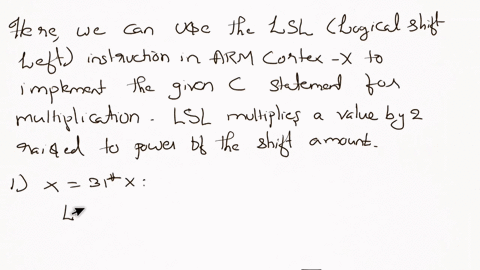 Here, we can use the LSL (Logical shift
Left) instruction in ARM Cortex-X to
implement the given C statement for
multiplication. LSL multiplies a value by 2
raised to power of the shift amount.
1) X = 31*X:
L